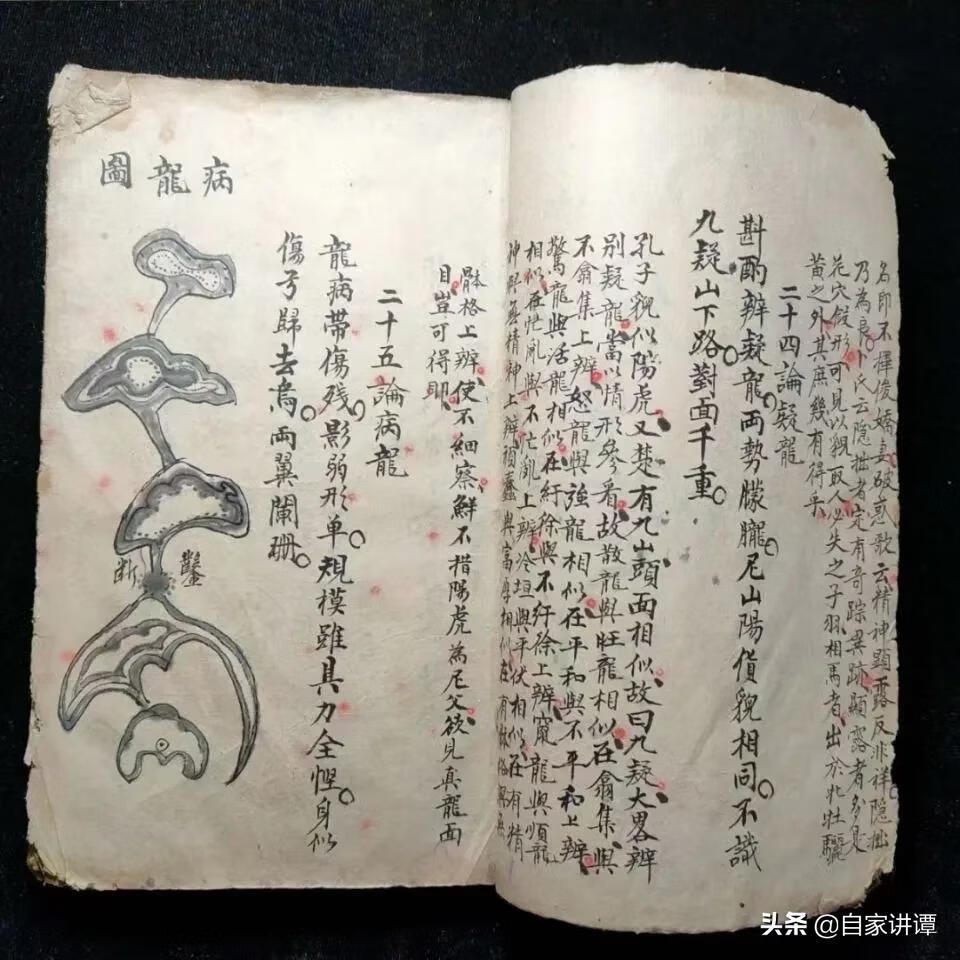 名即不揮俊嬌妻破惑歌云精神顯露反非祥隱拙
乃為良卜氏云隐拙者定有奇踪異跡顯露者多是
花穴假形可見以貌取人必失之子羽相馬者出於牝牡驪
黄之外其庶幾有得乎
二十四論疑龍
斟酌辨疑龍两勢朦朧尼山陽貨貌相同不識
九疑山下路對面千重
孔子貌似陽虎又楚有九山頭面相似故曰九疑大畧辨
別疑龍當以情形參看故散龍與旺龍相似在翕集與
不翕集上辨怒龍與強龍相似在平和與不平和上辨
驚龍與活龍相似在紆徐與不紆徐上辨竄龍與順龍
相似在忙乱與不忙亂上辨冷垣與平伏相似在有精
神與無精神上辨頑蠢與富厚相似在有
骵格上辨使不細察鮮不措陽虎為尼父欲見真龍面
目豈可得即
二十五論病龍
龍病带傷殘影弱形单規模雖具力全慳身似
傷弓歸去鳥两翼闌珊
病龍圖
鑿
断
头条@自家讲谭